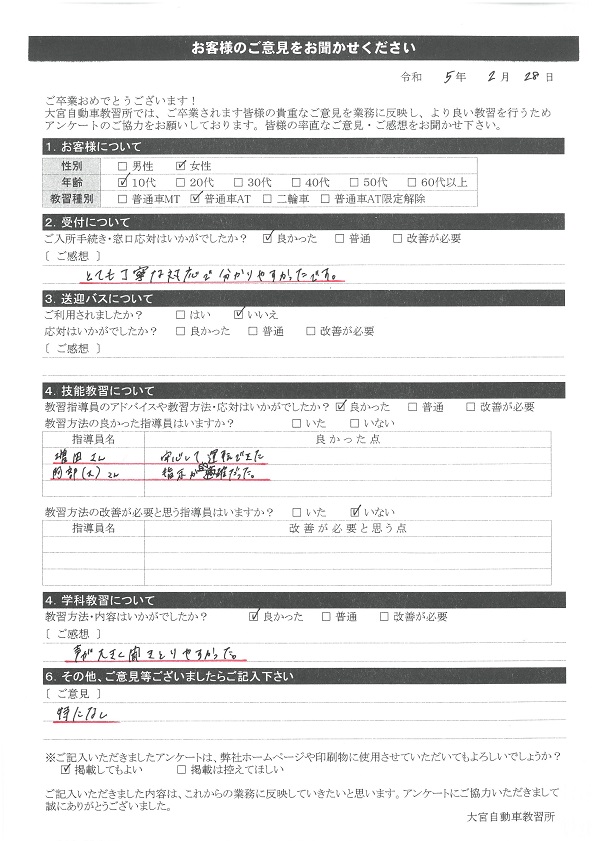 お客様のご意見をお聞かせください
令和 5年 2月 28日
ご卒業おめでとうございます！
大宮自動車教習所では、ご卒業されます皆様の貴重なご意見を業務に反映し、より良い教習を行うため
アンケートのご協力をお願いしております。皆様の率直なご意見・ご感想をお聞かせ下さい。
1. お客様について
性別 □ 男性 ☑ 女性
年齢 ☑ 10代 □ 20代 □ 30代 □ 40代 □ 50代 □ 60代以上
教習種別 □ 普通車MT ☑ 普通車AT □ 二輪車 □ 普通車AT限定解除
2. 受付について
ご入所手続き・窓口応対はいかがでしたか？ ☑ 良かった □ 普通 □ 改善が必要
［ ご感想 ］
とても丁寧な対応で分かりやすかったです。
3. 送迎バスについて
ご利用されましたか？ □ はい ☑ いいえ
応対はいかがでしたか？ □ 良かった □ 普通 □ 改善が必要
［ ご感想 ］
4. 技能教習について
教習指導員のアドバイスや教習方法・応対はいかがでしたか？ ☑ 良かった □ 普通 □ 改善が必要
教習方法の良かった指導員はいますか？ □ いた □ いない
指導員名 良かった点
増田さん 安心して運転できた
阿部(大)さん 指示が的確だった。
教習方法の改善が必要と思う指導員はいますか？ □ いた ☑ いない
指導員名 改善が必要と思う点
4. 学科教習について
教習方法・内容はいかがでしたか？ ☑ 良かった □ 普通 □ 改善が必要
［ ご感想 ］
声が大きく聞きとりやすかった。
6. その他、ご意見等ございましたらご記入下さい
［ ご意見 ］
特になし
※ご記入いただきましたアンケートは、弊社ホームページや印刷物に使用させていただいてもよろしいでしょうか？
☑ 掲載してもよい □ 掲載は控えてほしい
ご記入いただきました内容は、これからの業務に反映していきたいと思います。アンケートにご協力いただきまして
誠にありがとうございました。
大宮自動車教習所